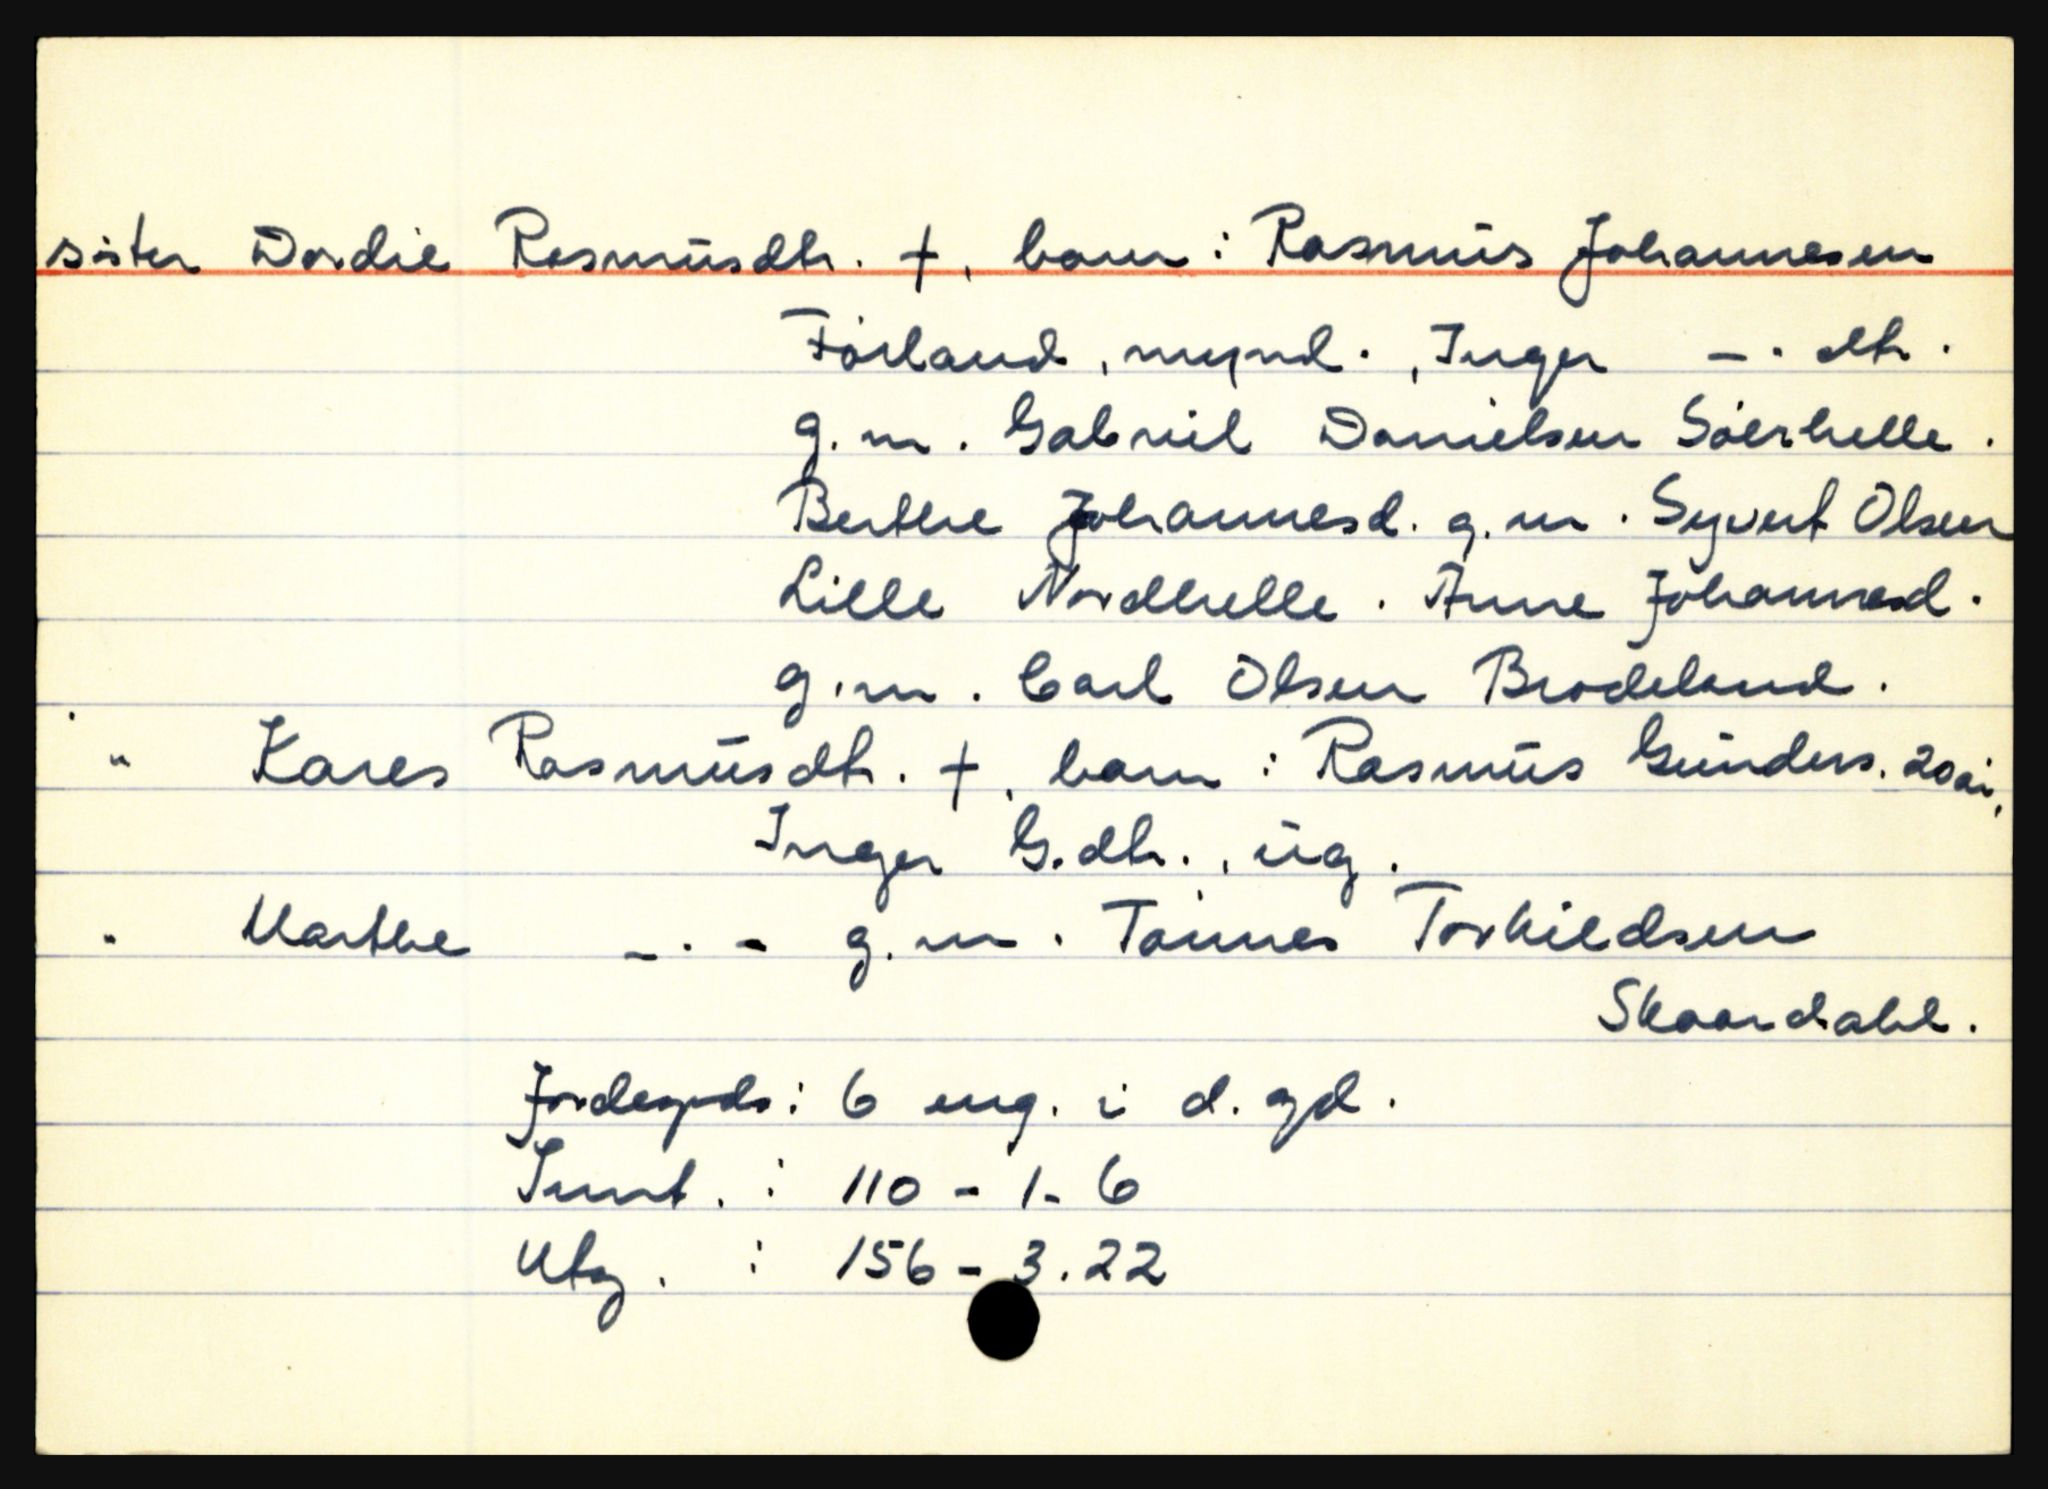 søster Dordie Rasmusdtr. +, barn: Rasmus Johannesen
Førland, mynd., Inger -.- dtr.
g.m. Gabriel Danielsen Søerhelle.
Berthe Johannesd. g.m. Syvert Olsen
Lille Nordhelle. Anne Johannesd.
g.m. Carl Olsen Brodeland.
" Kares Rasmusdtr. +, barn: Rasmus Gunders. 20 år,
Inger G.dtr., ug.
" Marthe -.- g.m. Tønnes Torkildsen
Skaardahl.
Jordegods: 6 eng. i d. gd.
Innt.: 110 - 1 - 6
Utg.: 156 - 3.22